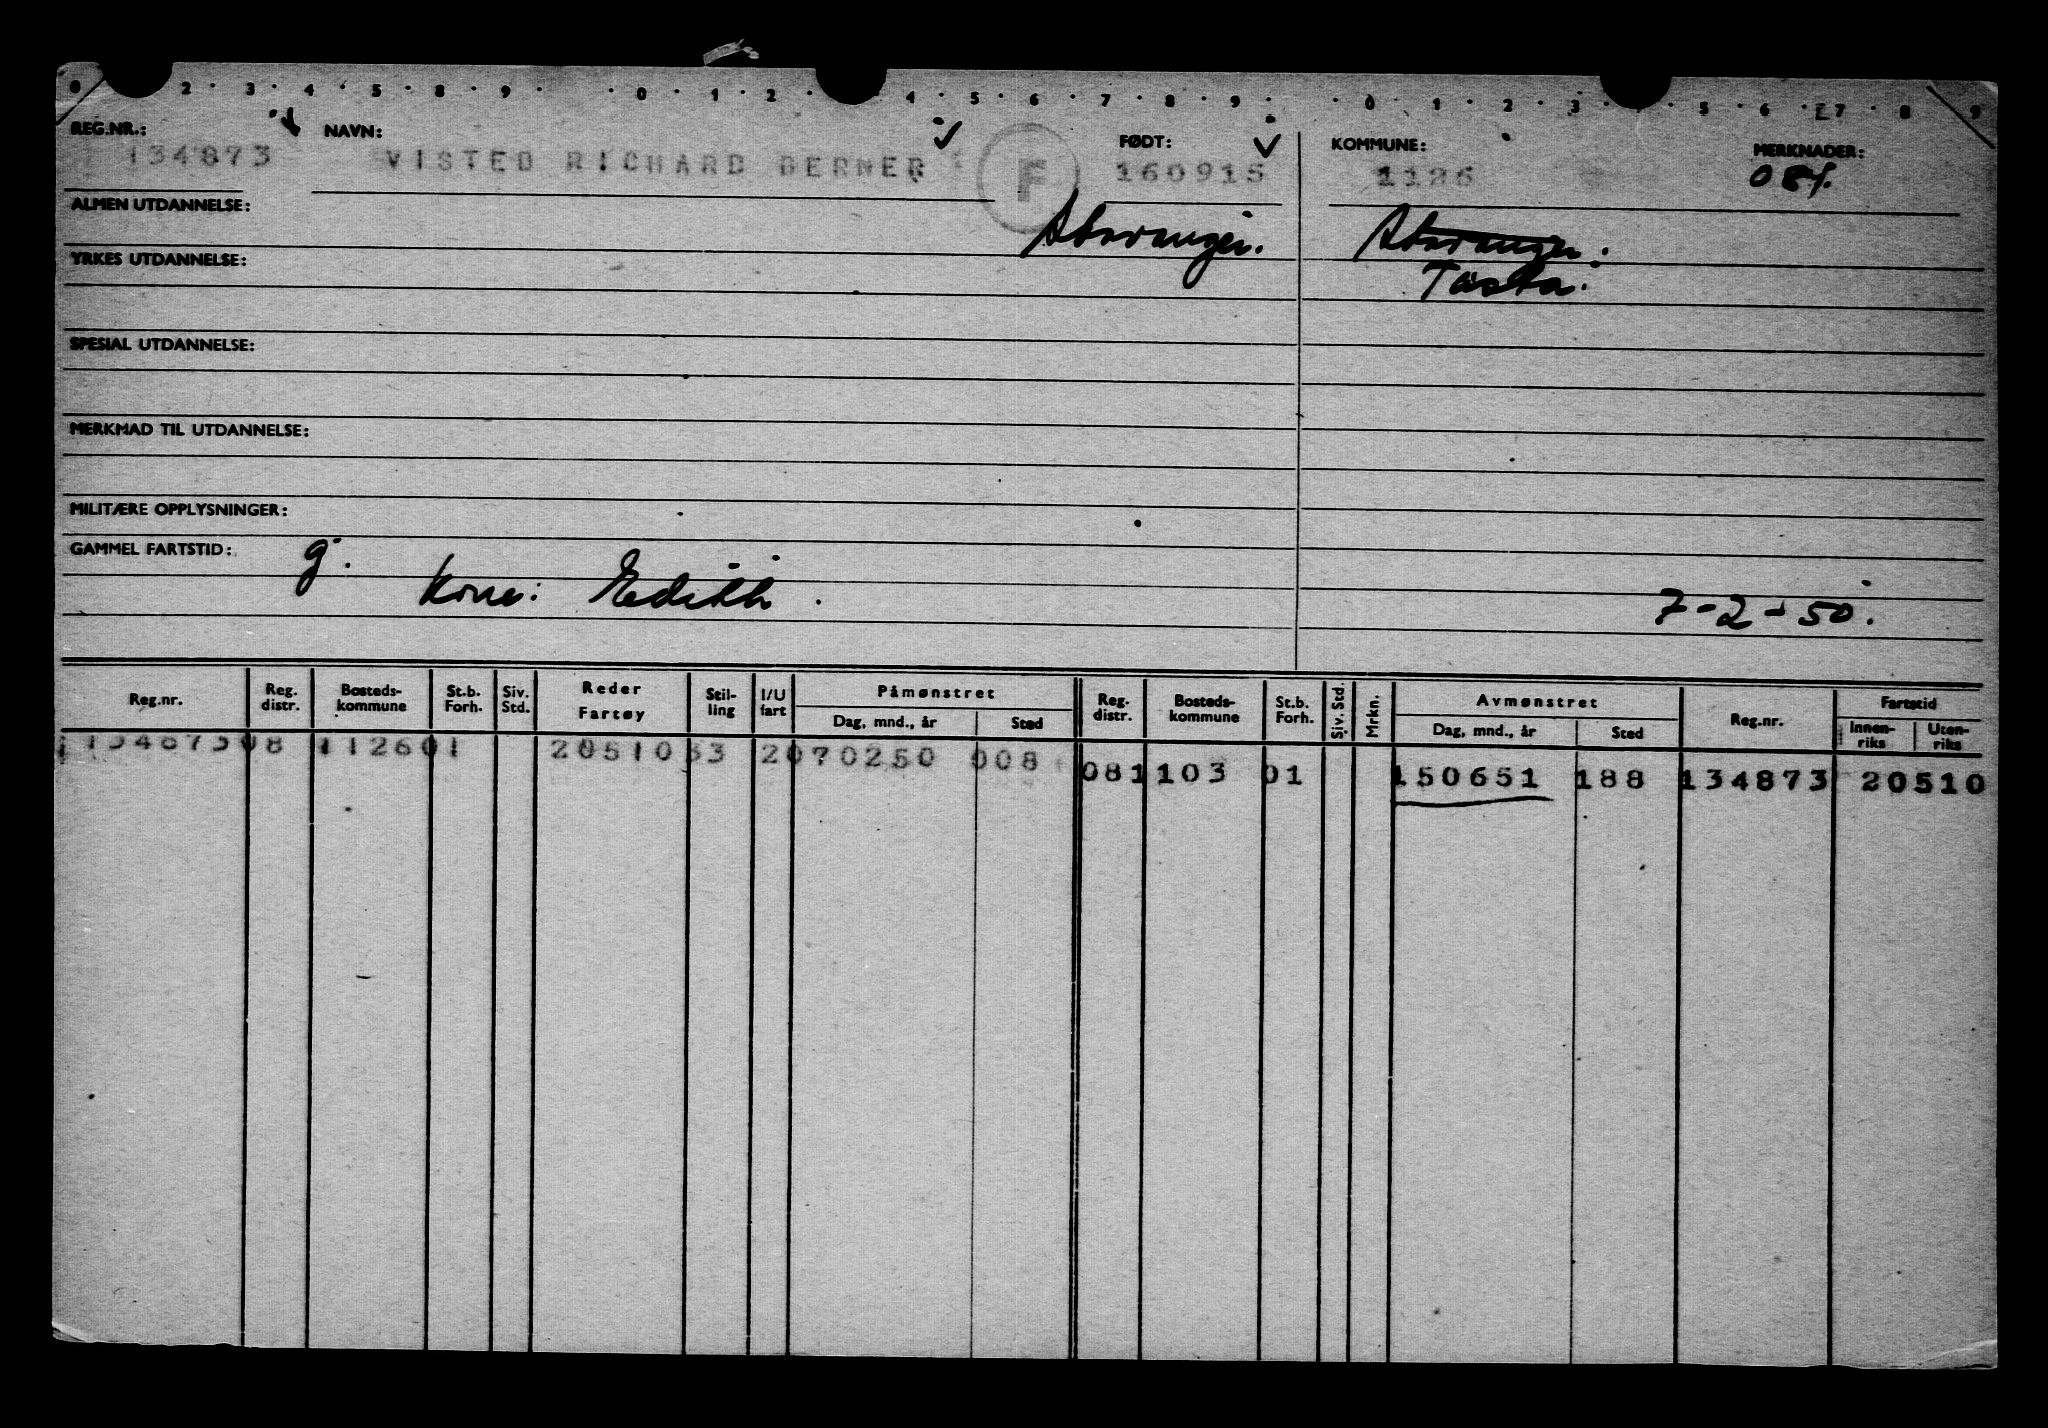 0 2 · 3 · 4 · 5 · 8 · 9 · · 0 · 1 · 2 · 4 · 5 · 6 · 7 · 8 · 9 · · 0 · 1 · 2 · 3 · 5 · 6 · 7 · 8 · 9
REG.NR.: NAVN: FØDT: KOMMUNE: MERKNADER:
134873 VISTED RICHARD BERNER F 160915 1126 081.
ALMEN UTDANNELSE: Stavanger. Stavanger.
YRKES UTDANNELSE: Tasta.
SPESIAL UTDANNELSE:
MERKMAD TIL UTDANNELSE:
MILITÆRE OPPLYSNINGER:
GAMMEL FARTSTID: g.
Kone: Edith. 7-2-50.
Reg.nr. Reg. distr. Bosteds-kommune St.b. Forh. Siv. Std. Reder Fartøy Stil-ling I/U fart Påmønstret Dag, mnd., år Sted Reg. distr. Bosteds-kommune St.b. Forh. Siv. Std. Mrkn. Avmønstret Dag, mnd., år Sted Reg.nr. Fartstid Innen-riks Uten-riks
134873 08 1126 01 20510 53 2 070250 008
08 1103 01 150651 188 134873 20510